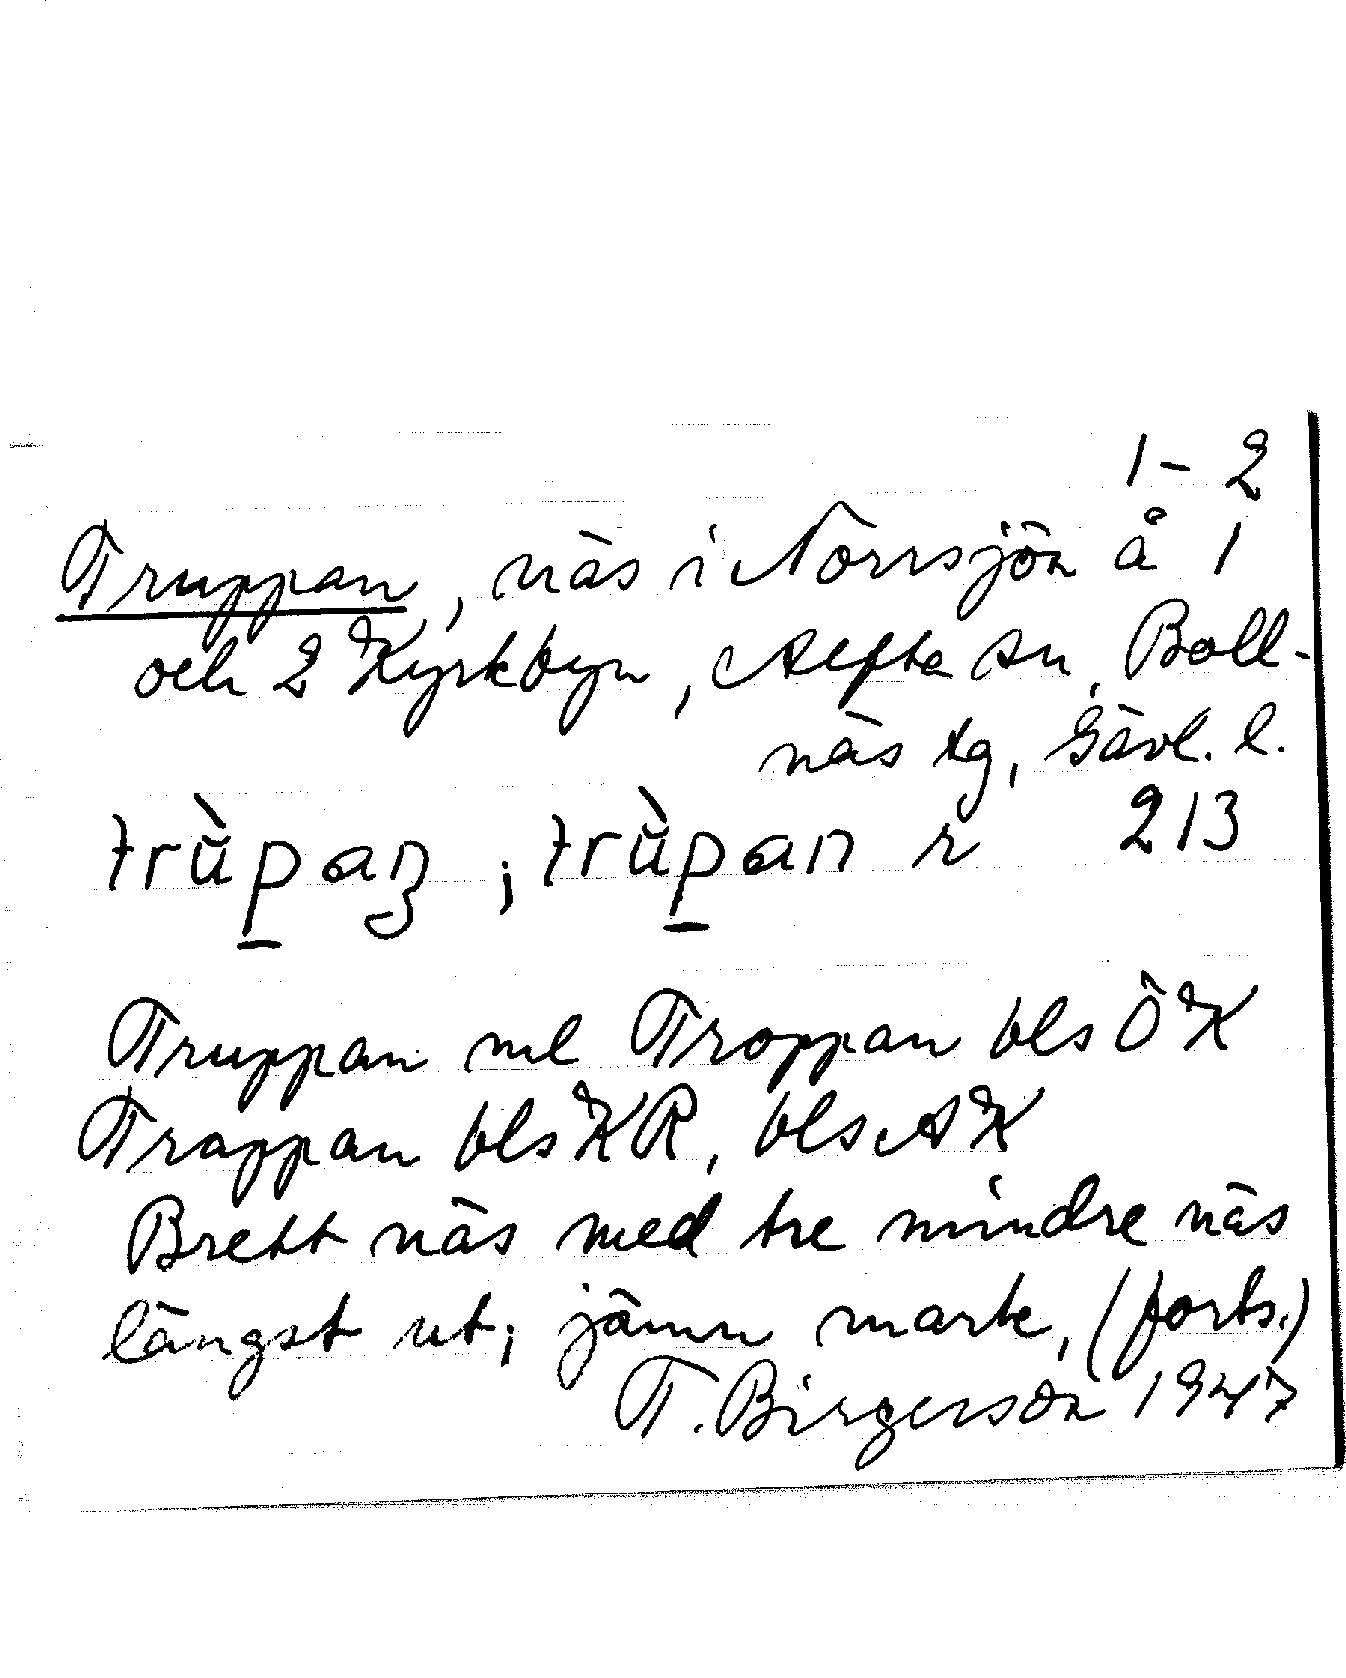 1-2
Truppan, näs i Norrsjön å 1
och 2 Kyrkbyn, Alfta sn, Boll-
näs tg, Gävl. l.
trŭ̀pan ; trŭ̀pan r 213
Truppan ml Troppan bls ÖK
Trappan bls KR, bls AK
Brett näs med tre mindre näs
längst ut; jämn mark, (forts.)
T. Birgerson 1947